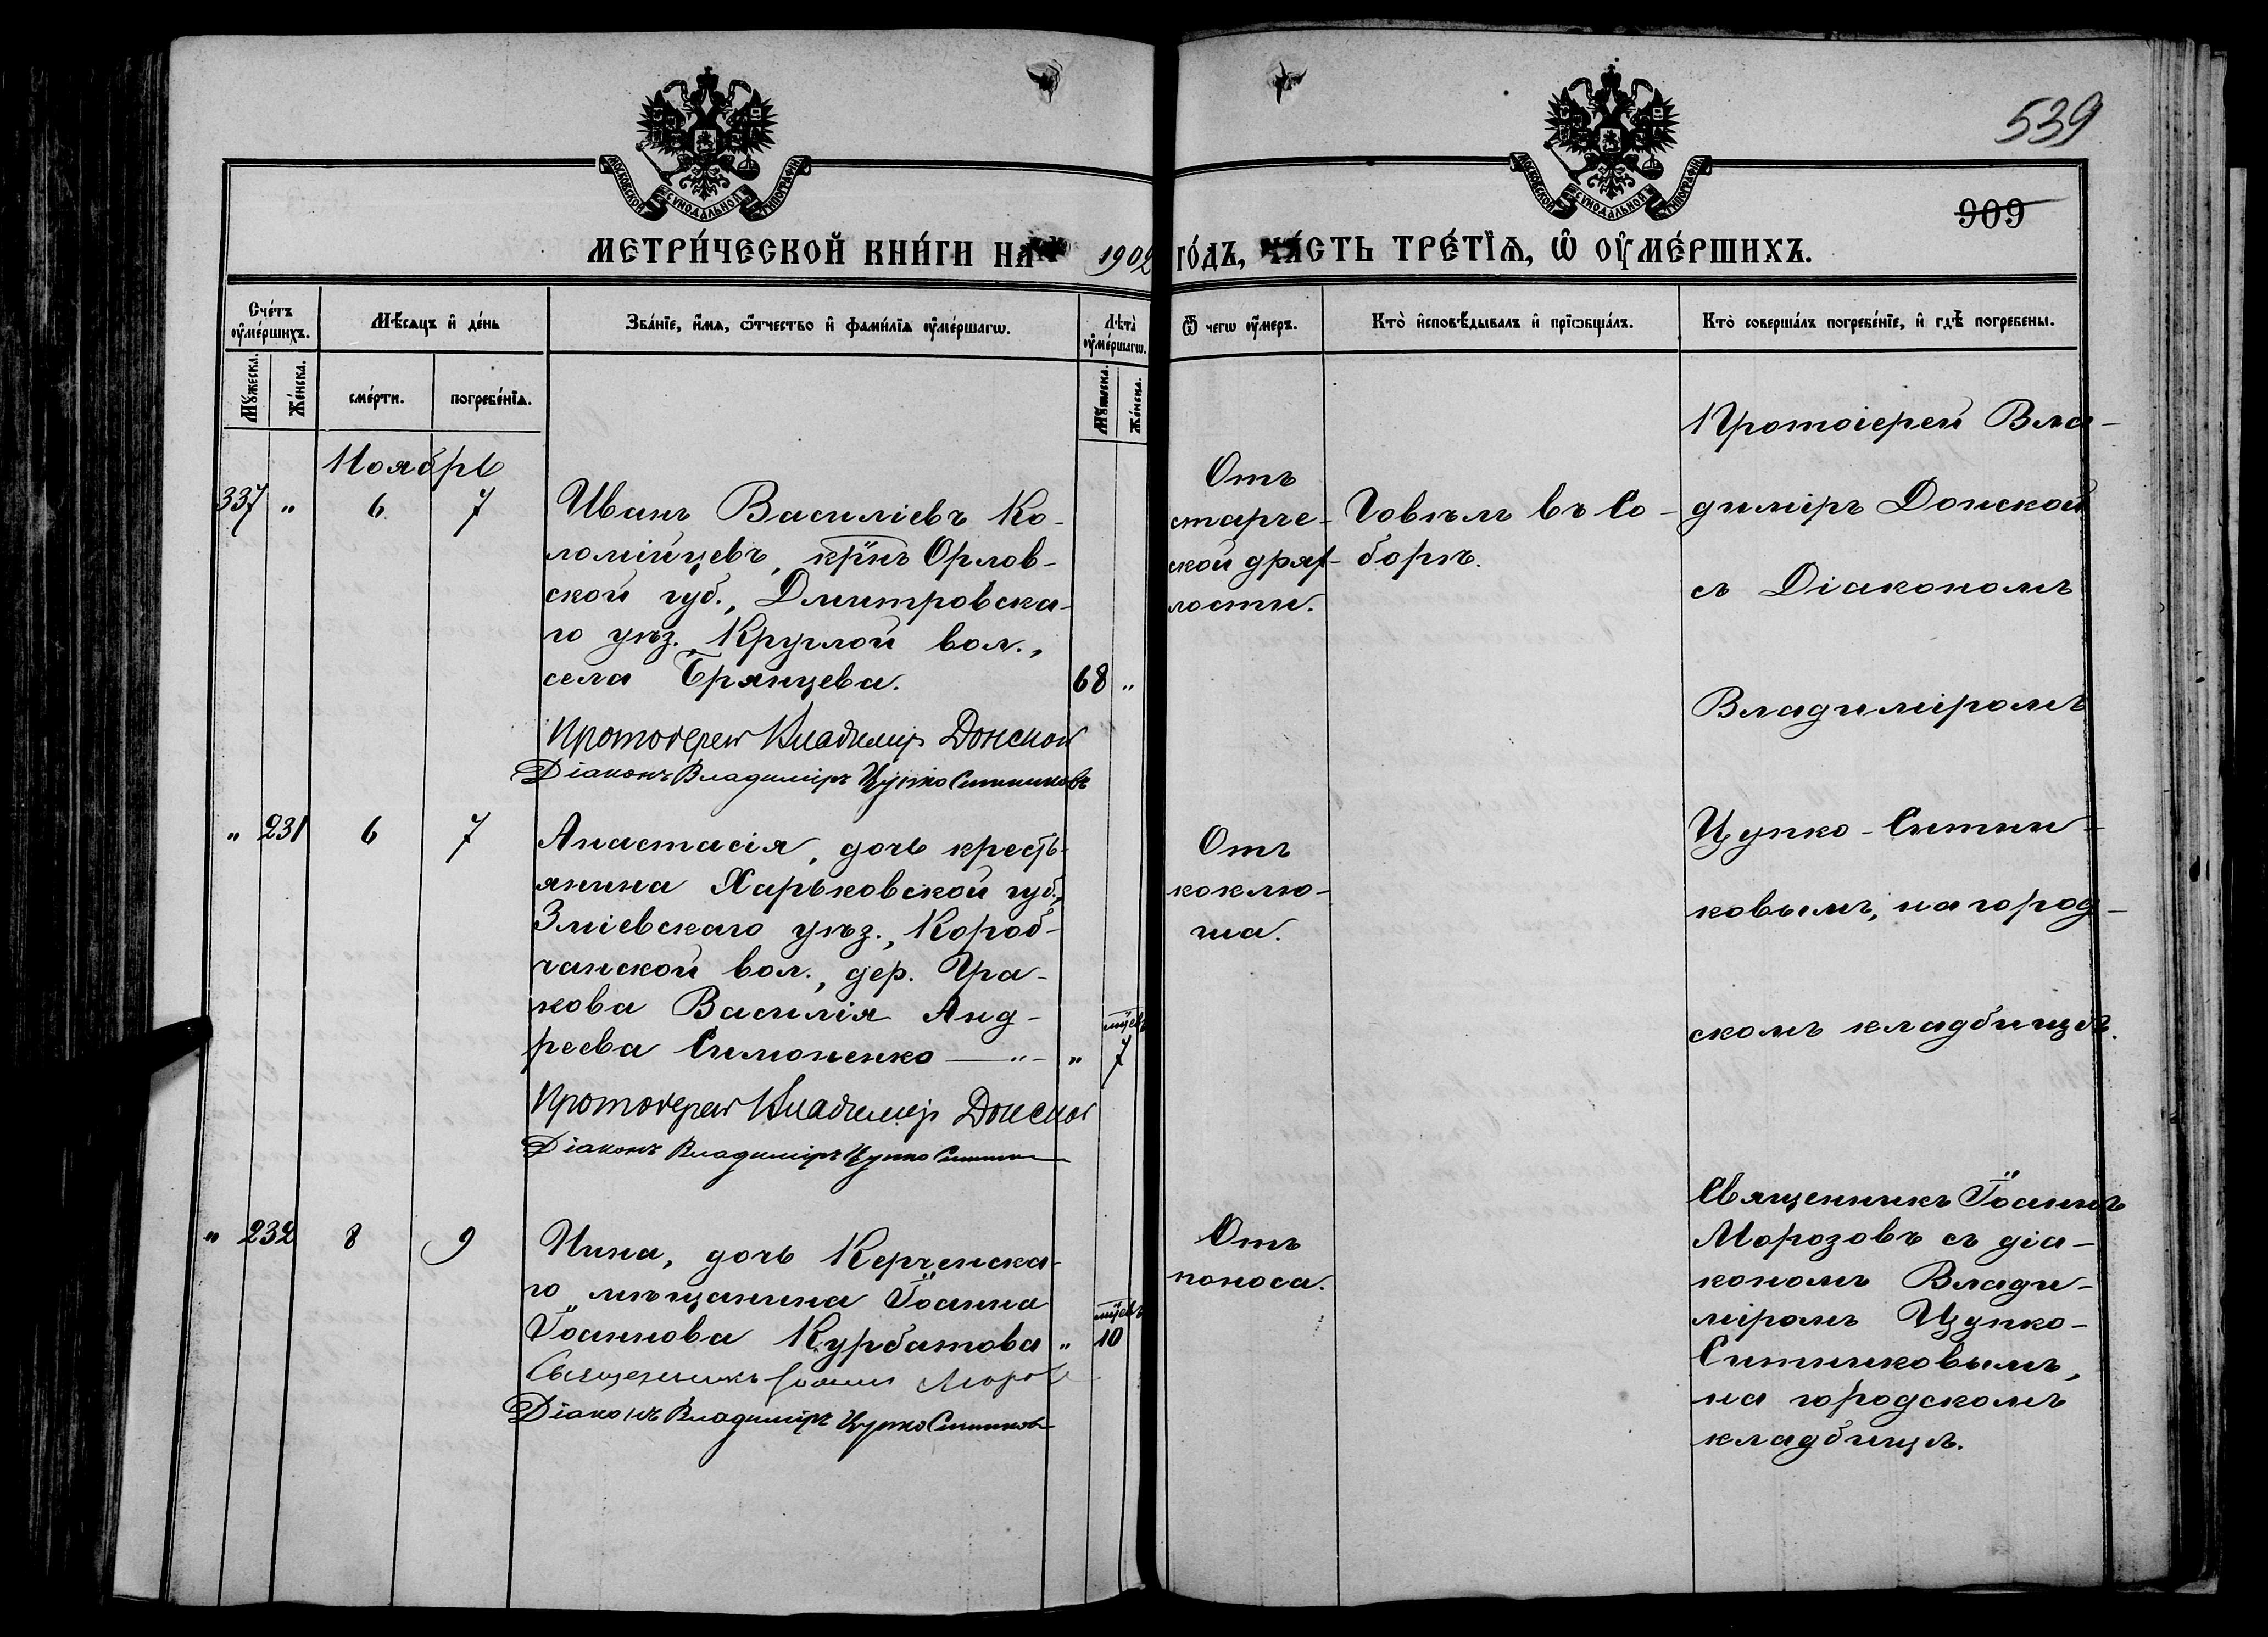 539
909
МОСКОВСКОЙ СѴНОДАЛЬНОЙ ТИПОГРАФІИ
МОСКОВСКОЙ СѴНОДАЛЬНОЙ ТИПОГРАФІИ
МЕТРИ́ЧЕСКОЙ КНИ́ГИ НА 1902 ГО́ДЪ, ЧА́СТЬ ТРЕ́ТЇѦ, Ѡ҆ ОУ҆МЕ́РШИХЪ.
Сче́тъ оу҆ме́ршихъ.
Мꙋ́жеска.
Же́нска.
Мѣ́сѧцъ и҆ де́нь
сме́рти.
погребе́нїѧ.
Зва́нїе, и҆́мѧ, ѻ҆́тчество и҆ фами́лїѧ оу҆ме́ршагѡ.
Лѣ́та оу҆ме́ршагѡ.
Мꙋ́жеска.
Же́нска.
Ѿ чегѡ оу҆́меръ.
Кто̀ и҆сповѣ́дывалъ и҆ прїѡбща́лъ.
Кто̀ соверша́лъ погребе́нїе, и҆ гдѣ̀ погребены.
Ноябрь
337 " 6 7
Иванъ Василіевъ Ко-
ломійцевъ, кр̅нъ Орлов-
ской губ., Дмитровска-
го уѣз. Круглой вол.,
села Брянцева.
68 "
Протоіерей Владимір Донской
Діаконъ Владиміръ Цупко Ситниковъ
Отъ
старче-
ской дрях-
лости.
Говѣлъ въ Со-
борѣ.
Протоіерей Вла-
диміръ Донской
съ Діакономъ
Владиміромъ
Цупко-Ситни-
ковымъ, на город-
скомъ кладбищѣ.
" 231 6 7
Анастасія, дочь кресть-
янина Харьковской губ.,
Зміевскаго уѣз., Короб-
чанской вол., дер. Гра-
кова Василія Анд-
реева Симоненко — " —
" мцевъ 7
Протоіерей Владимір Донской
Діаконъ Владиміръ Цупко Ситник
Отъ
коклю-
ша.
" 232 8 9
Нина, дочь Керченска-
го мѣщанина Іоанна
Іоаннова Курбатова
" мцевъ 10
Священникъ Іоаннъ Мороз
Діаконъ Владиміръ Цупко Ситниковъ
Отъ
поноса.
Священникъ Іоаннъ
Морозовъ съ діа-
кономъ Влади-
міромъ Цупко-
Ситниковымъ,
на городскомъ
кладбищѣ.